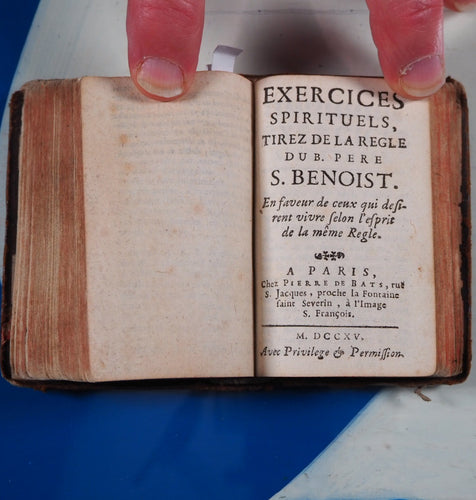 EXERCICES
SPIRITUELS,
TIREZ DE LA REGLE
DU B. PERE
S. BENOIST.
En faveur de ceux qui desi-
rent vivre ſelon l'eſprit
de la même Regle.
A PARIS,
Chez PIERRE DE BATS, ruë
S. Jacques, proche la Fontaine
ſaint Severin, à l'Image
S. François.
M. DCCXV.
Avec Privilege & Permiſſion.